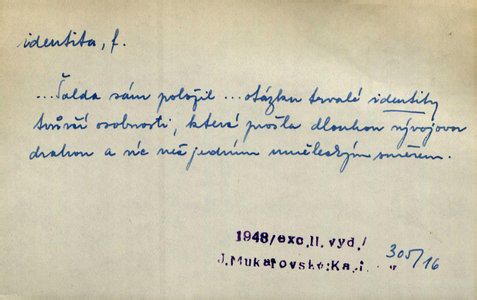 identita, f.
...Šalda sám položil ... otázku trvalé identity
tvůrčí osobnosti, která prošla dlouhou vývojovou
drahou a víc než jedním uměleckým směrem.
1948/exc.II. vyd./
J.Mukařovský:Ka.i. 305/16